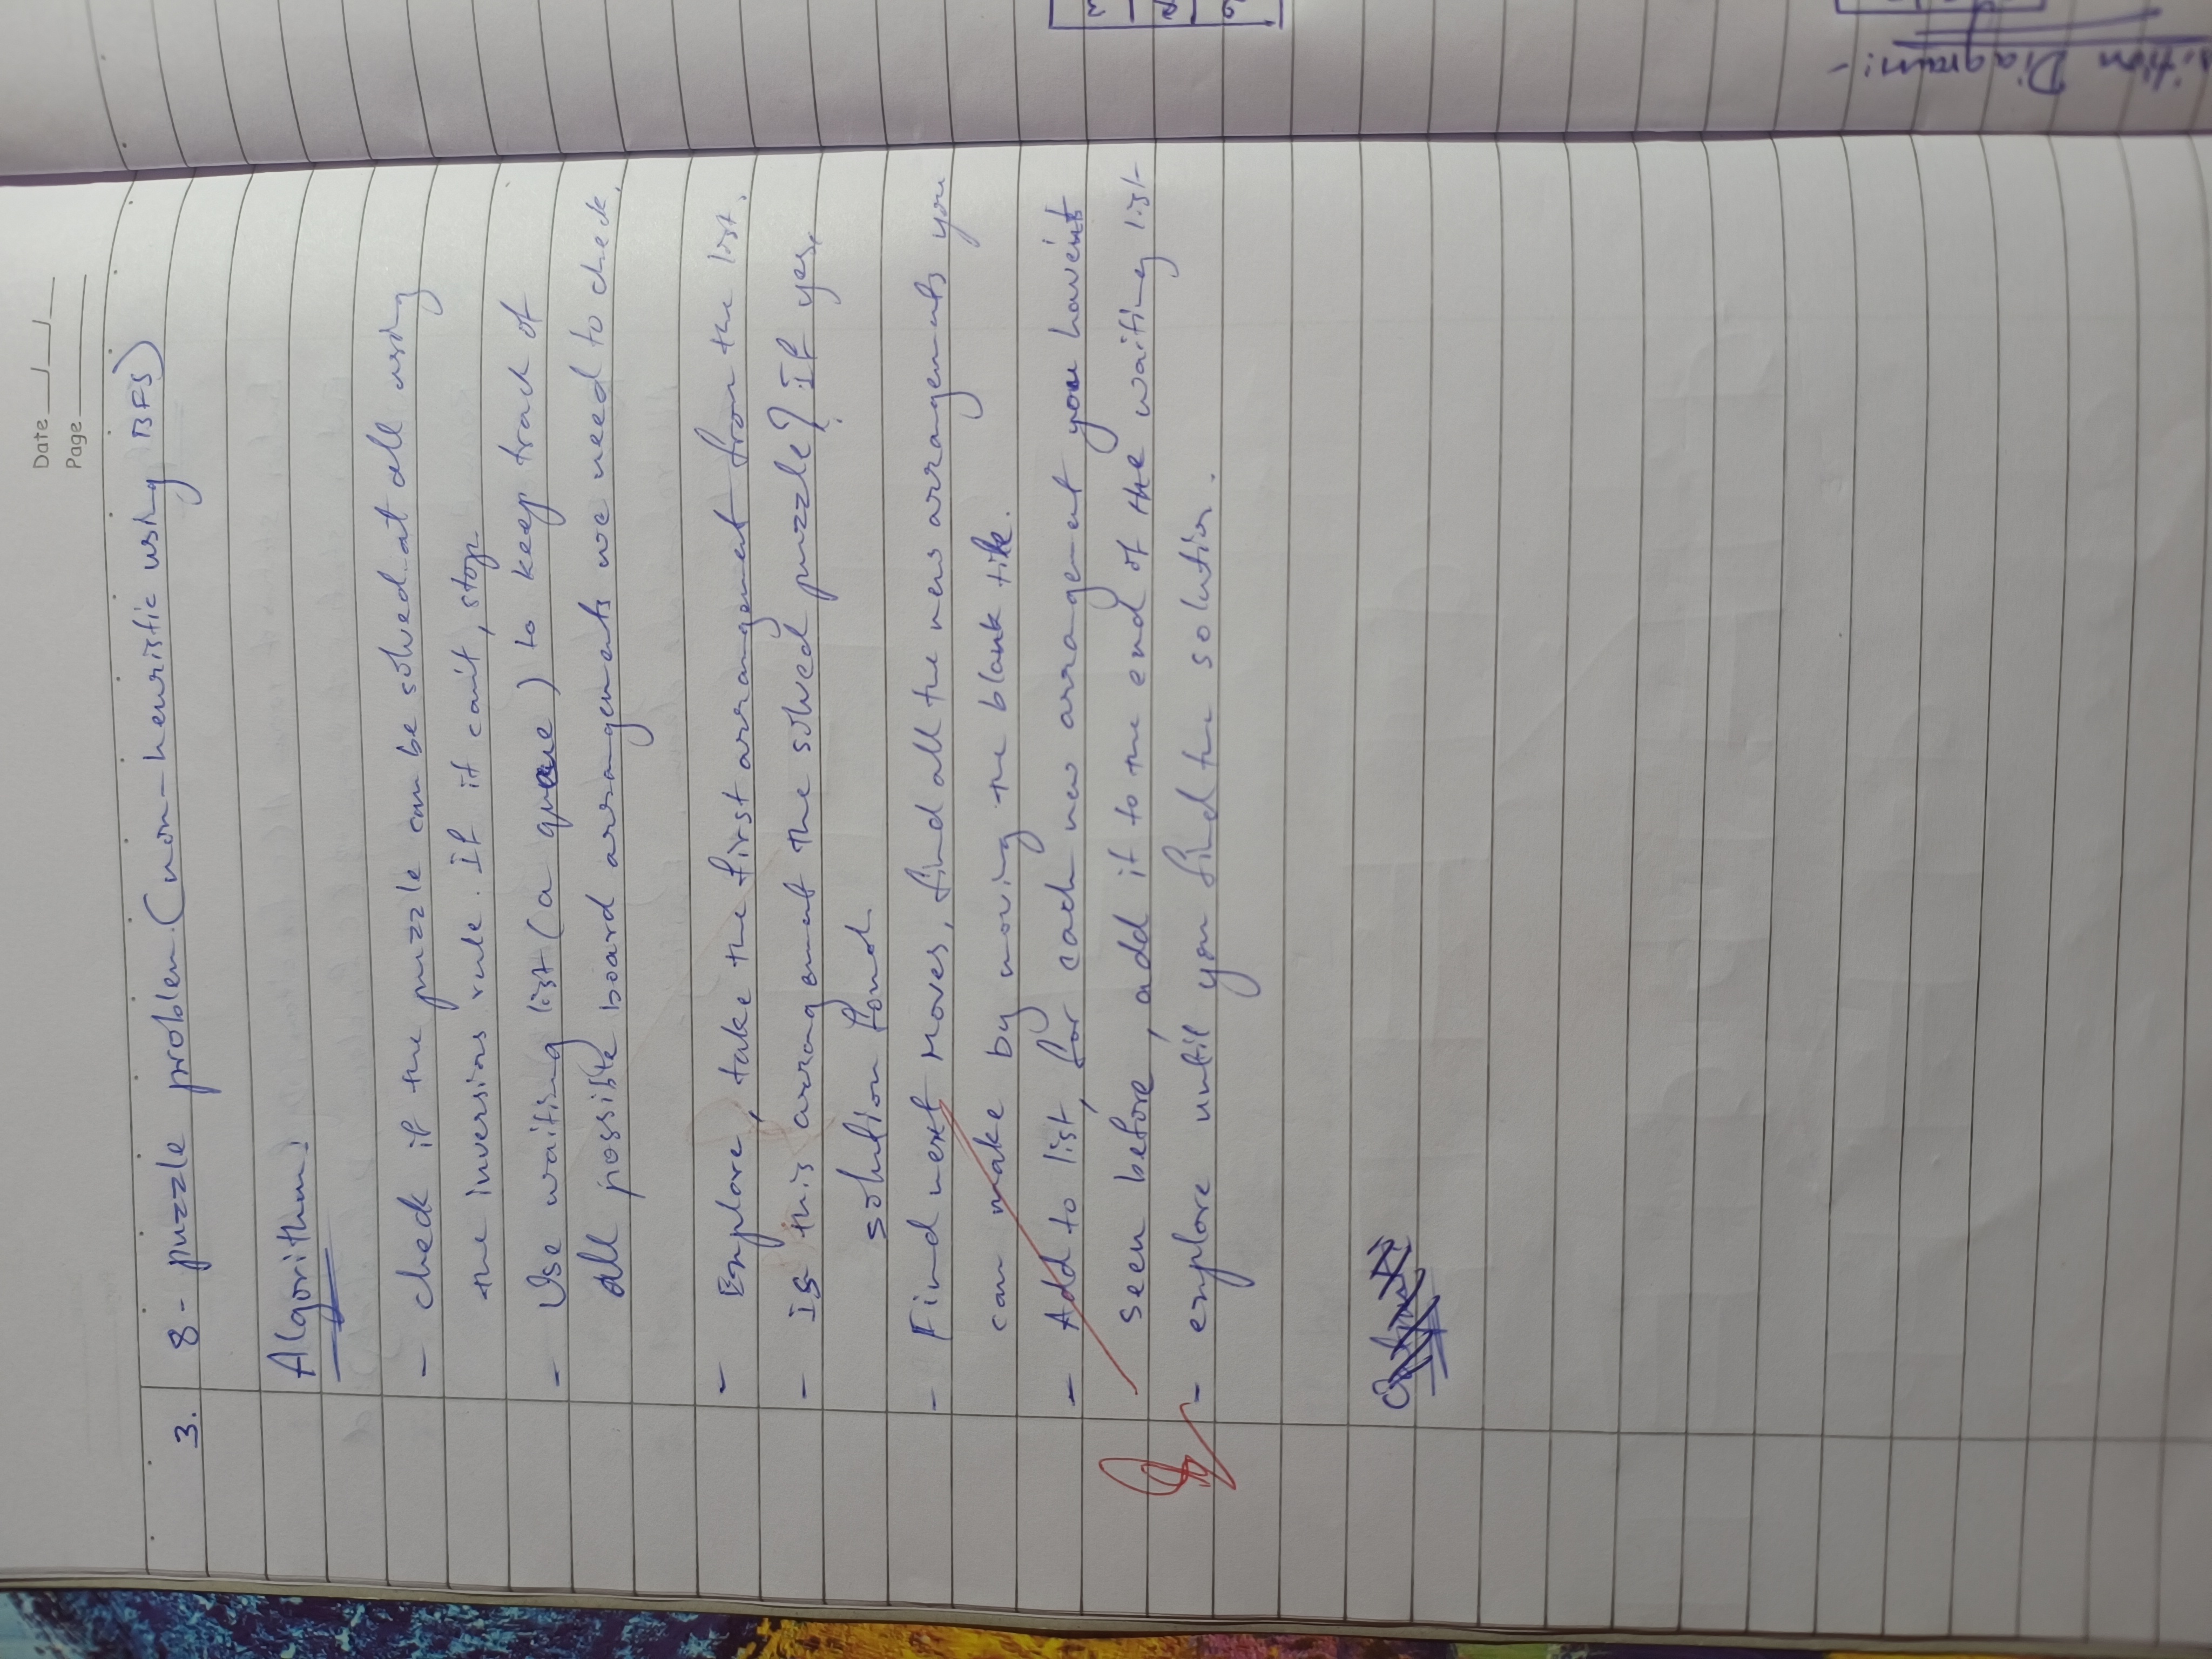 Date
Page
3. 8 - puzzle problem. (non-heuristic using BFS)
Algorithm:
- check if the puzzle can be solved at all using
the inversions rule. If it can't, stop.
- Use waiting list (a queue) to keep track of
all possible board arrangements we need to check.
- Explore, take the first arrangement from the list.
- Is this arrangement the solved puzzle? If yes,
solution found
- Find next Moves, find all the new arrangements you
can make by moving the blank tile.
- Add to list, for each new arrangement you haven't
seen before, add it to the end of the waiting list
- explore until you find the solution.
Diagram:-